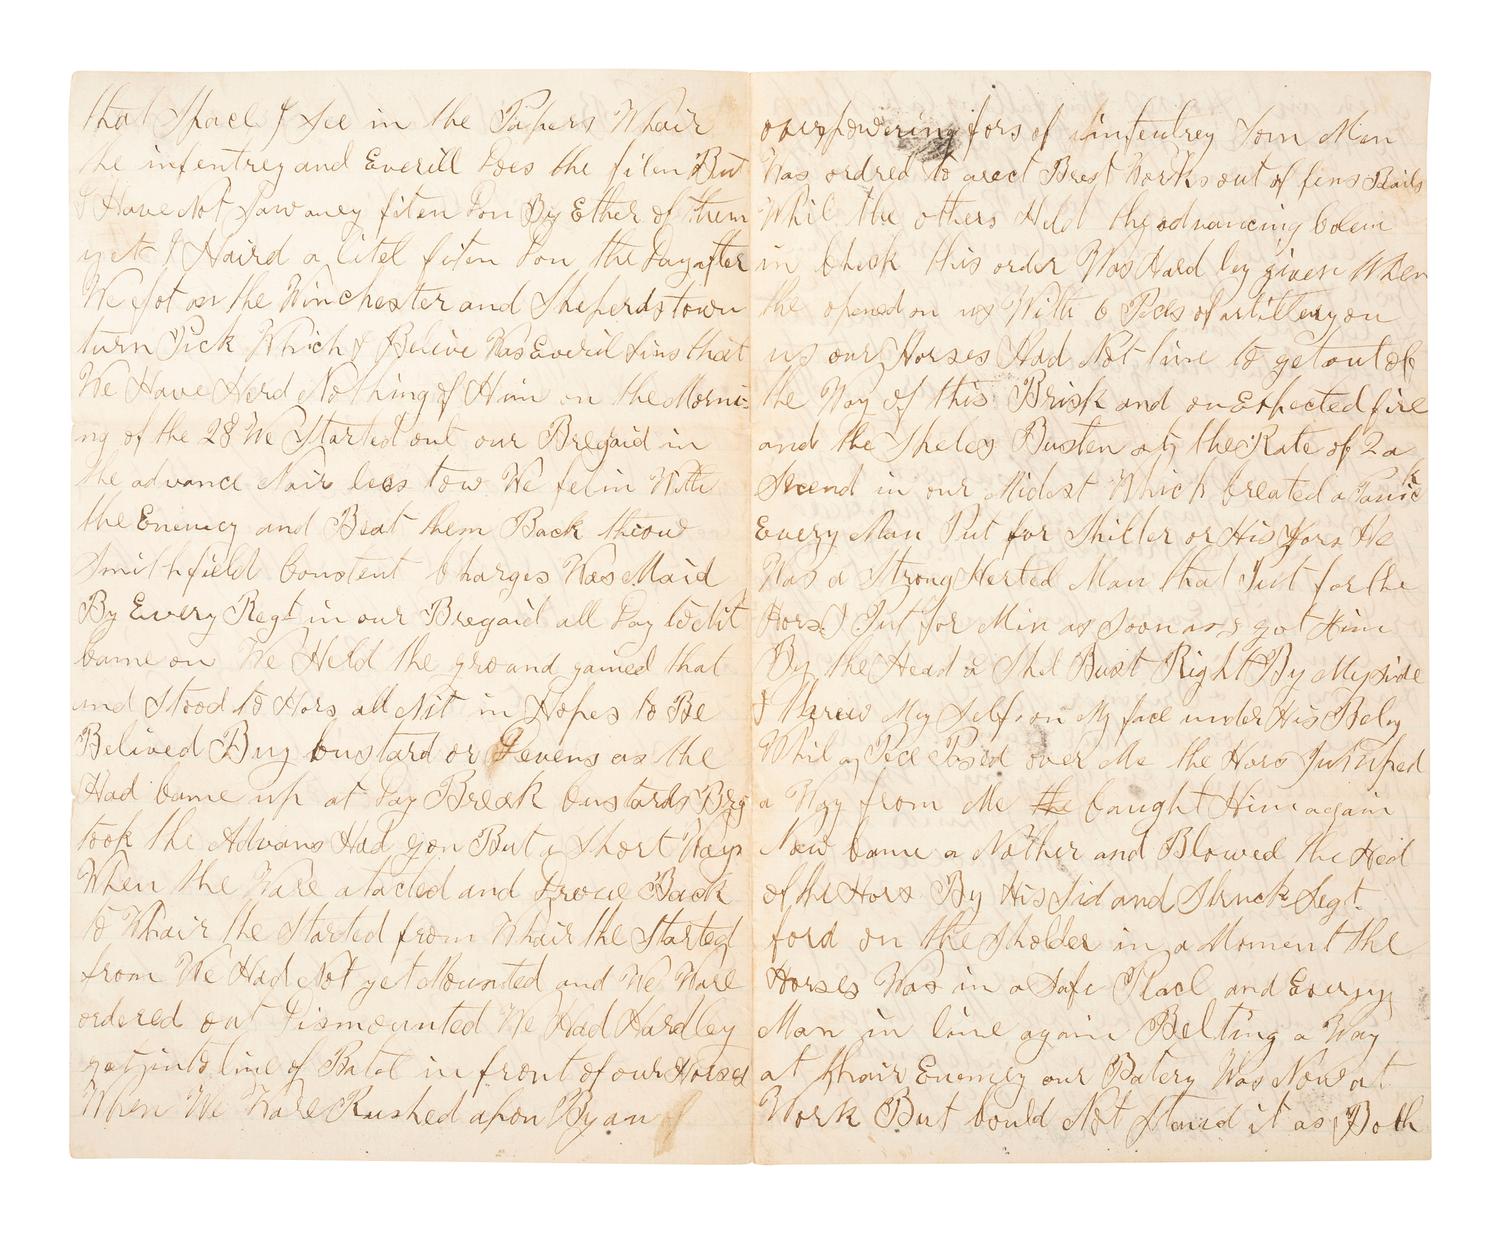 that Spacl I See in the Papers Whair
the infentrey and Everill Does the fiten But
I Have Not Saw aney fiten Don By Ether of them
yet I Haird a litel fiten Don the Day after
We Got on the Winchester and Sheperdstown
turn Pick Which I Belive Was Everil sins that
We Have Herd Nothing of Him on the Morni-
ng of the 28 We Started out our Bregaid in
the advance Nair lees tow We fel in With
the Enemey and Beat them Back throw
Smithfield Constent Charges Was Maid
By Every Regt in our Bregaid all Day to Nit
Came on We Held the ground gained that
and Stood to Hors all Nit in Hopes to Be
Belived By Custard or Devens as the
Had Came up at Day Break Custards Brg
took the Advans Had gon But a Short Ways
When the Ware atacted and Drove Back
to Whair the Started from Whair the Started
from We Had Not yet Mounted and We Ware
ordered out Dismounted We Had Hardley
got into line of Batel in front of our Horses
When We Ware Rushed apon By an
overpowering fors of infentrey Som Men
Was ordred to arect Brest Works out of fens Rails
Whil the others Held the advancing Colem
in Check this order Was Hard ley given When
the opened on us With 6 Peas of artillery on
us our Horses Had Not time to get out of
the Way of this Brisk and onExpected fire
and the Sheles Busten at the Rate of 2 a
Secend in our Midest Which Created a Panick
Every Man Put for Shilter or His Hors He
Was a Strong Herted Man that Put for the
Hors I Put for Min as Soon as I got Him
By the Head a Shel Bust Right By My side
I threw My Self on My face under His Beley
Whil a Pece Pased over Me the Hors Jumped
a Way from Me the Caught Him again
Now Came a Nother and Blowed the Hed
of the Hors By His Sid and Struck Segt.
ford on the Sholder in a Moment the
Horses Was in a Safe Placl and Every
Man in line again Belting a Way
at thair Enemey our Batery Was Now at
Work But Could Not Stand it as Both